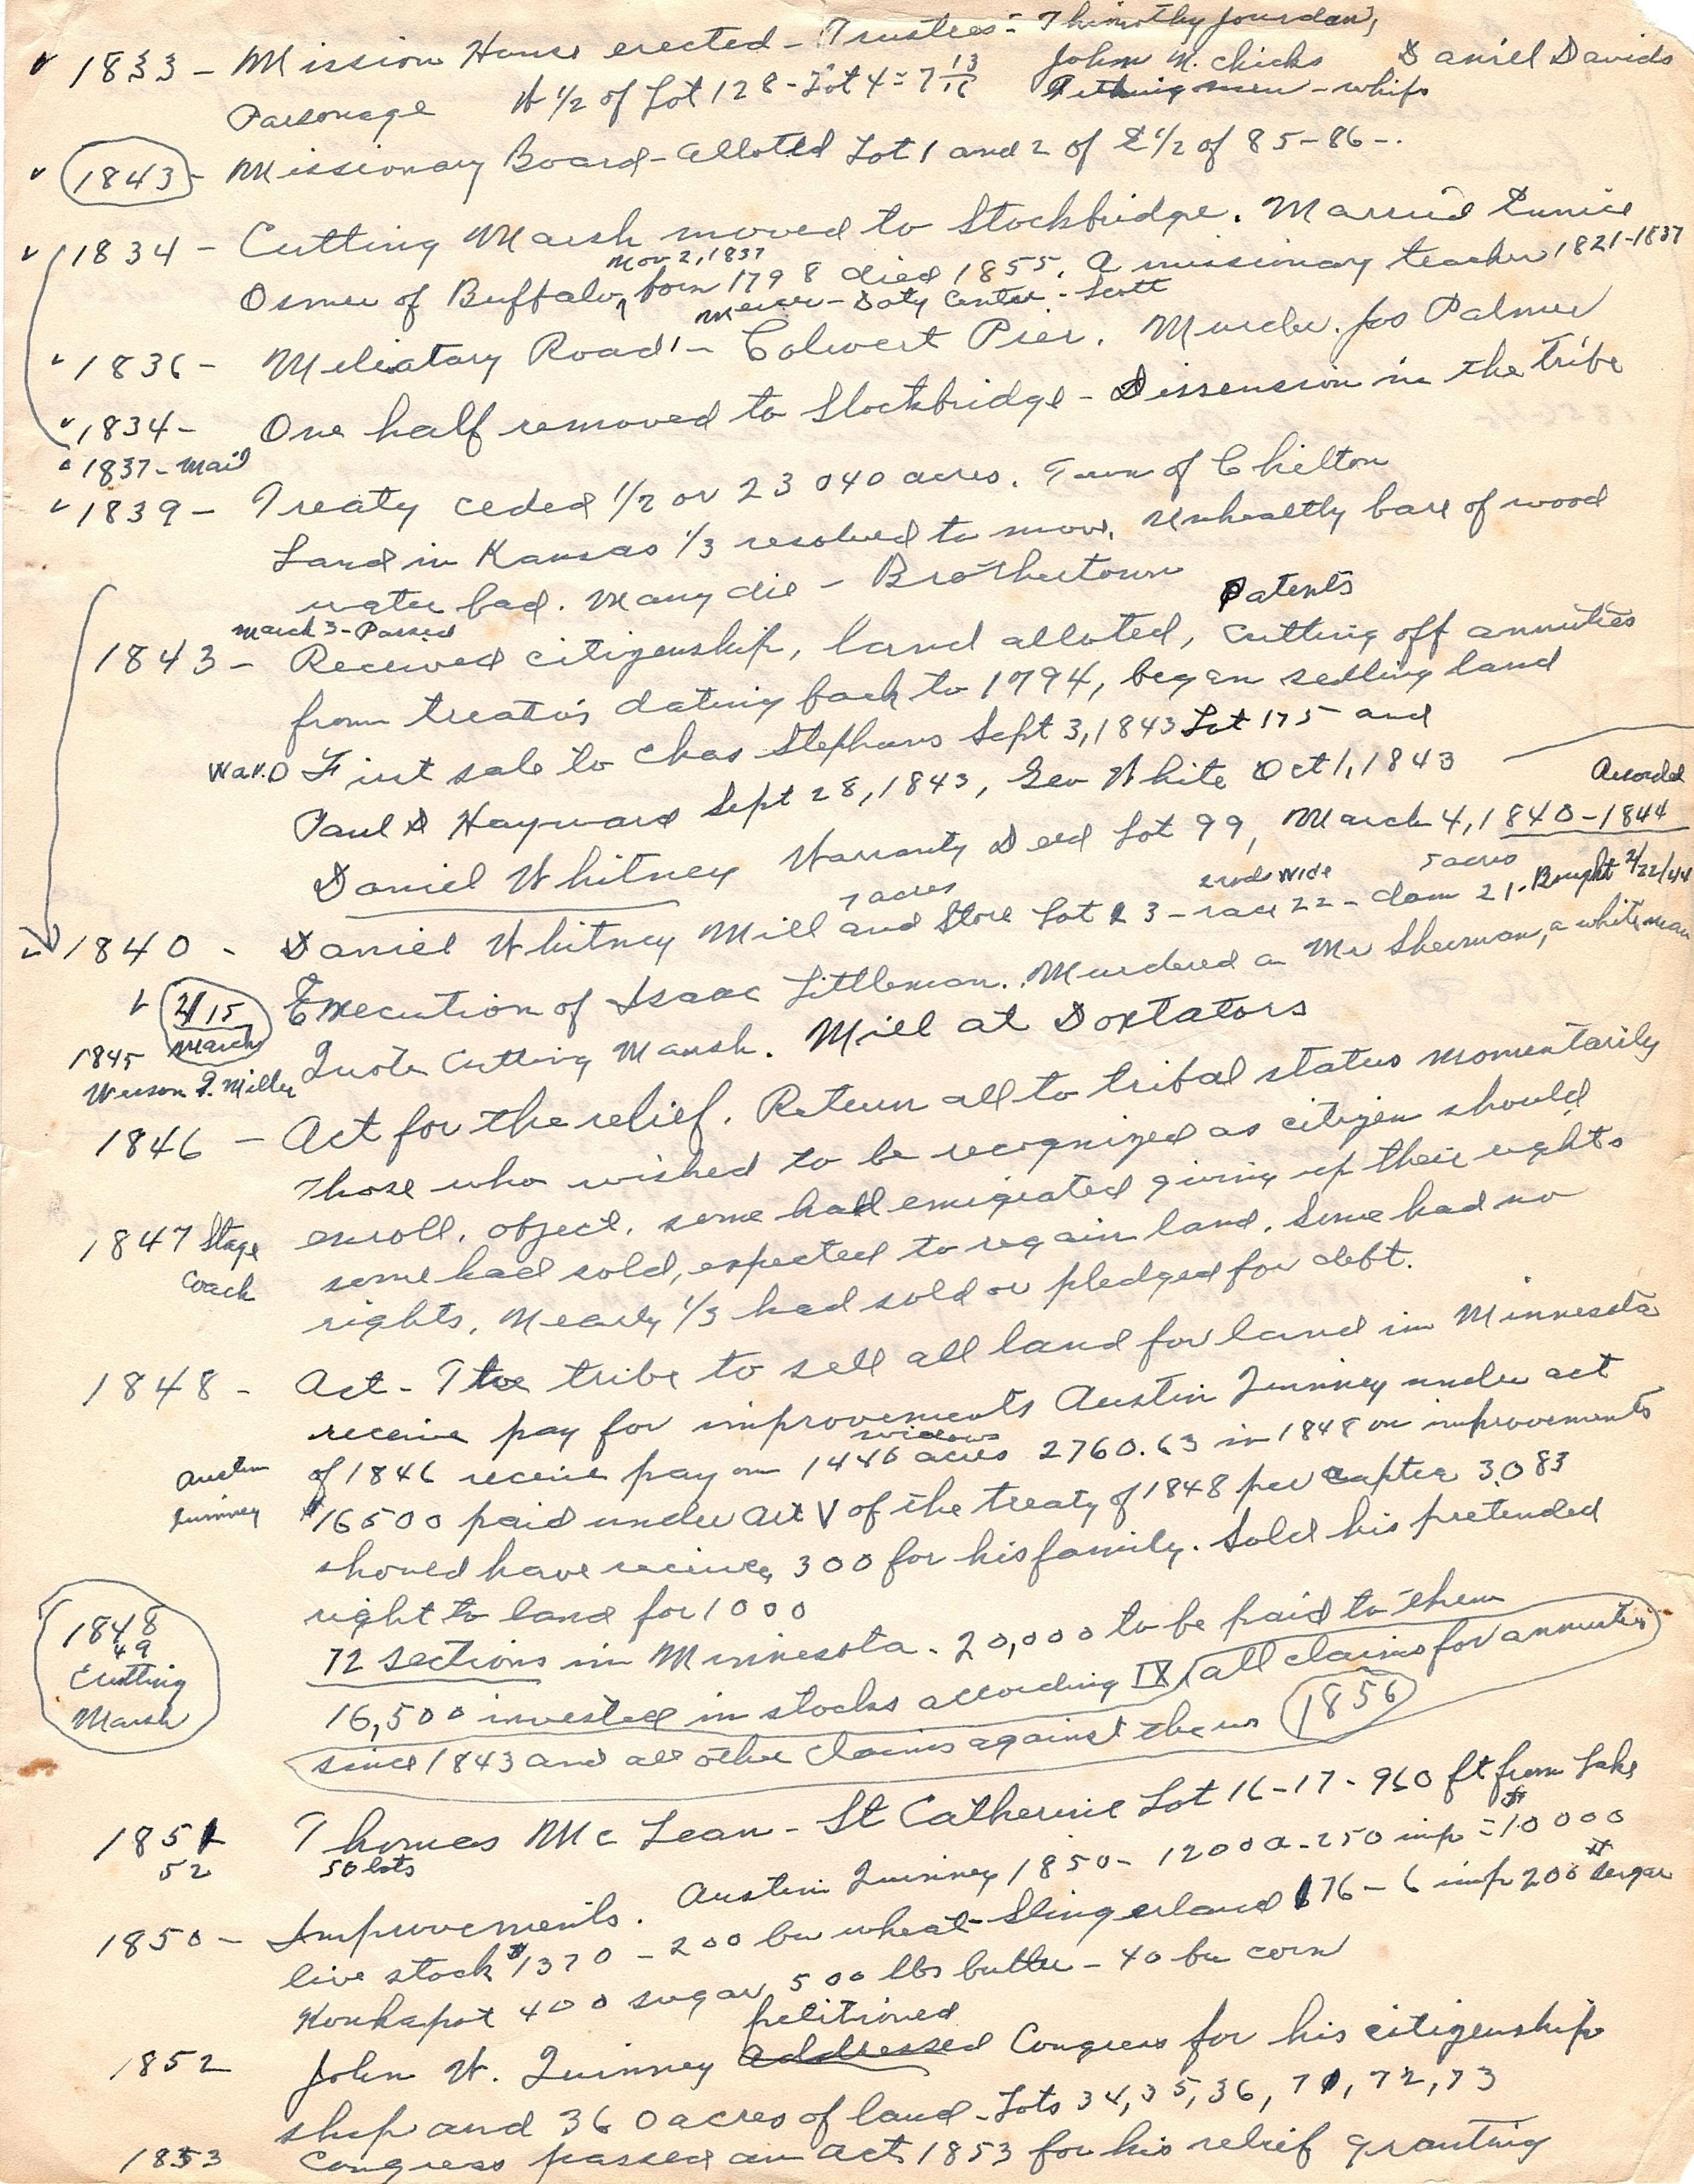 1833 - Mission House erected - Trustees - Thimothy Jourdan,
John N. Chicks Daniel Davids
Parsonage W 1/2 of Lot 128 - Lot 4 = 7 13/16 Tithing men - whips
1843 - Missionary Board - alloted Lot 1 and 2 of E 1/2 of 85-86 -.
1834 - Cutting Marsh moved to Stockbridge. Married Eunice
Nov 2, 1837
Osmer of Buffalo, born 1798 died 1855. A missionary teacher 1821-1837
- Doty Center - Scott
1836 - Miliatary Road - Calwert Pier. Murder. Jos Palmer
1834 - One half removed to Stockbridge - Dissension in the tribe
1837 - Mail
1839 - Treaty ceded 1/2 or 23 040 acres. Town of Chilton
Land in Kansas 1/3 resolved to move. Unhealthy bare of wood
water bad. Many die - Brothertown
March 3 - Passed Patents
1843 - Received citizenship, land alloted, cutting off annuties
from treatis dating back to 1794, began selling land
War.D First sale to Chas Stephens Sept 3, 1843 Lot 175 and
Paul D Hayward Sept 28, 1843, Geo White Oct 1, 1843
Recorded
Daniel Whitney Warranty Deed Lot 99, March 4, 1840-1844
7 acres 2 rods wide 5 acres
1840 - Daniel Whitney Mill and Store Lot 23 - race 22 - dam 21 - Bought 2/22/44
2/15 March Execution of Isaac Littleman. Murdered a Mr Sherman, a white man
1845 Quote Cutting Marsh. Mill at Doxtators
Werson Q. Miller
1846 - Act for the relief. Return all to tribal status momentarily
Those who wished to be recognized as citizen should
1847 Stage Coach
enroll, object, some had emigrated giving up their rights
some had sold, expected to regain land. Some had no
rights. Nearly 1/3 had sold or pledged for debt.
1848 - Act - The tribe to sell all land for land in Minnesota
receive pay for improvements Austin Quinney under act
widows
Austin Quinney
of 1846 receive pay on 1446 acres 2760.63 in 1848 on improvements
$16500 paid under Art V of the treaty of 1848 per capter 30.83
should have receive 300 for his family. Sold his pretended
right to land for 1000
1848 49 Cutting Marsh
72 sections in Minnesota. 20,000 to be paid to them
16,500 invested in stocks according IX all claims for annuties
since 1843 and all other claims against the us 1856
1851 Thomas McLean - St Catherine Lot 16-17-960 ft from Lake
52 50 lots
1850 - Improvements. Austin Quinney 1850 - 1200 a - 250 imp = $10000
live stock $1370 - 200 bu wheat - Slingerland 176 - 6 imp 200 # sugar
Konkapot 400 sugar 500 lbs butter - 40 bu corn
petitioned
1852 John W. Quinney addressed Congress for his citizenship
ship and 360 acres of land - Lots 34, 35, 36, 71, 72, 73
1853 Congress passed an act 1853 for his relief granting